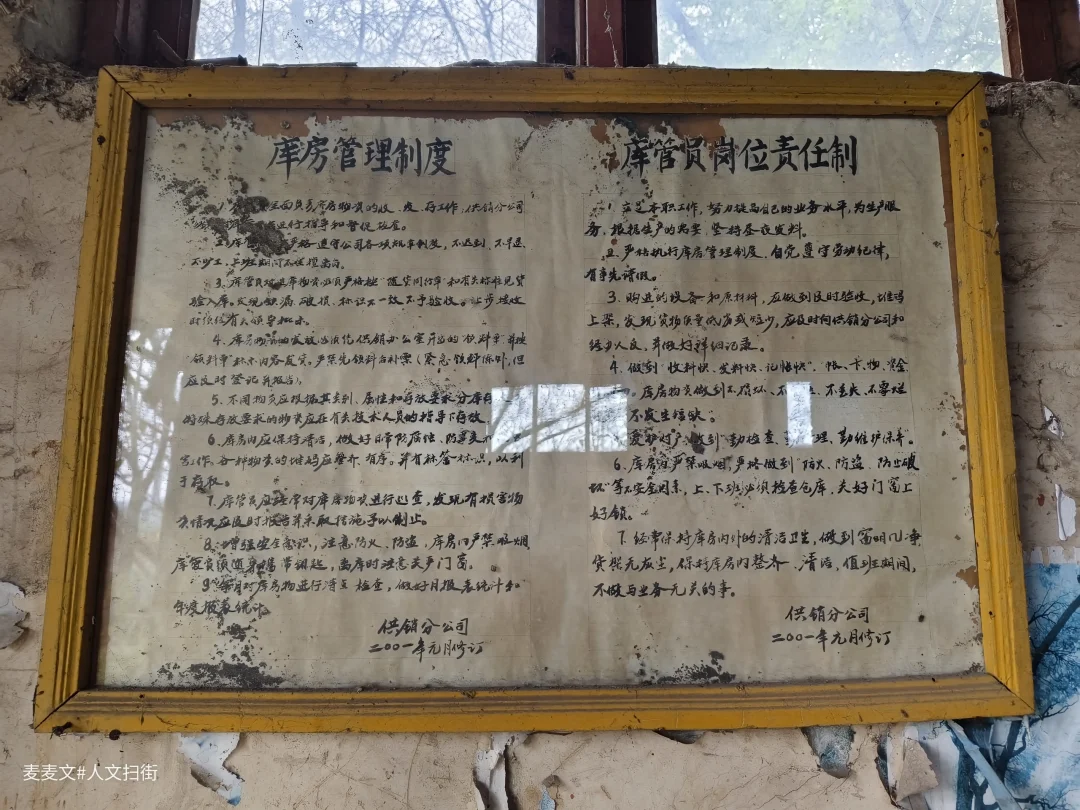 库房管理制度
库房物资的收、发、存工作，供销分公司
进行指导和督促检查。
严格遵守公司各项规章制度，不迟到、不早退、
3、库管员
验入库。发现缺漏、破损、标识不一致不予验收。让步接收
时须经有关领导批示。
4、库房物资的发放必须凭供销办公室开出的领料单并按
领料单标示内容发货。严禁先领料后补票（紧急领料除外，但
应及时登记并报告）。
5、不同物资应根据其类别、属性和存放要求分库存
特殊存放要求的物资应在有关技术人员的指导下存放
6、库房内应保持清洁，做好日常防腐蚀、防霉变
工作，各种物资的堆码应整齐、有序。并有标签标识，以利
于存取。
7、库管员应经常对库房物资进行巡查，发现有损害物
资情况应及时报告并采取措施予以制止。
8、增强安全意识，注意防火、防盗，库房内严禁吸烟
库管员须随身携带钥匙，离库时注意关严门窗。
9、每月对库房物进行清点检查，做好月报表统计和
年度报表统计。
供销分公司
二00一年元月修订
库管员岗位责任制
1、立足本职工作，努力提高自己的业务水平，为生产服
务，根据生产的需要，坚持昼夜发料。
2、严格执行库房管理制度、自觉遵守劳动纪律，
有事先请假。
3、购进的设备和原材料，应做到及时验收，堆码
上架，发现货物质量低劣或短少，应及时向供销分公司和
经办人反，并做好详细记录。
4、做到“收料快、发料快、记帐快”，“帐、卡、物、资金
库房物资做到不损坏、不丢失、不霉烂
不发生短缺”。
到“勤检查、理、勤维护保养”。
6、库房内严禁吸烟，严格做到“防火、防盗、防止破
坏”等不安全因素，上、下班必须检查仓库，关好门窗上
好锁。
7、经常保持库房内外的清洁卫生，做到窗明几净
货架无灰尘，保持库房内整齐、清洁，值班期间，
不做与业务无关的事。
供销分公司
二00一年元月修订
麦麦文#人文扫街